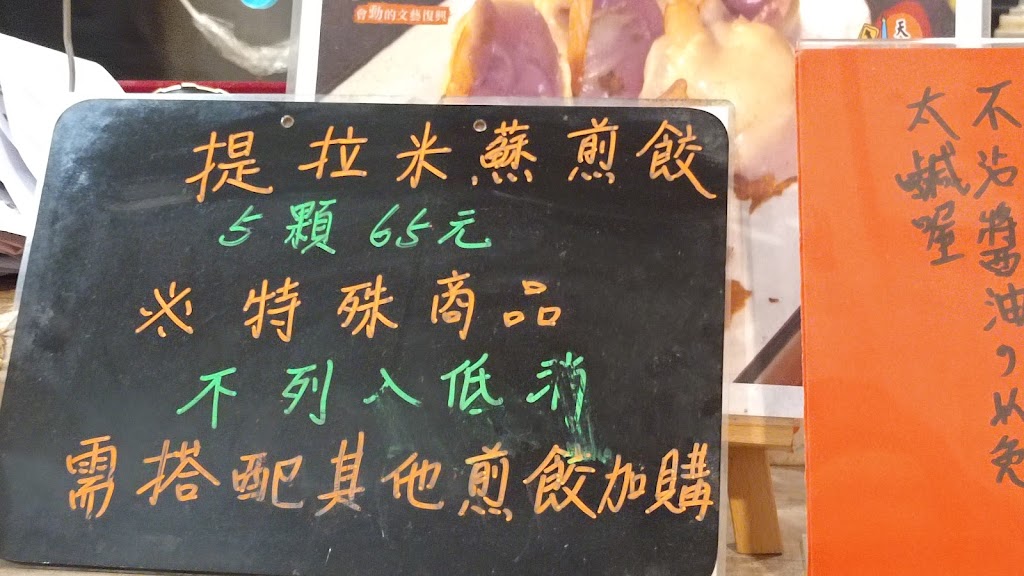 會動的文藝復興
天
提拉米蘇煎餃
5顆 65元
※特殊商品
不列入低消
需搭配其他煎餃加購
不沾醬油,以免
太鹹喔